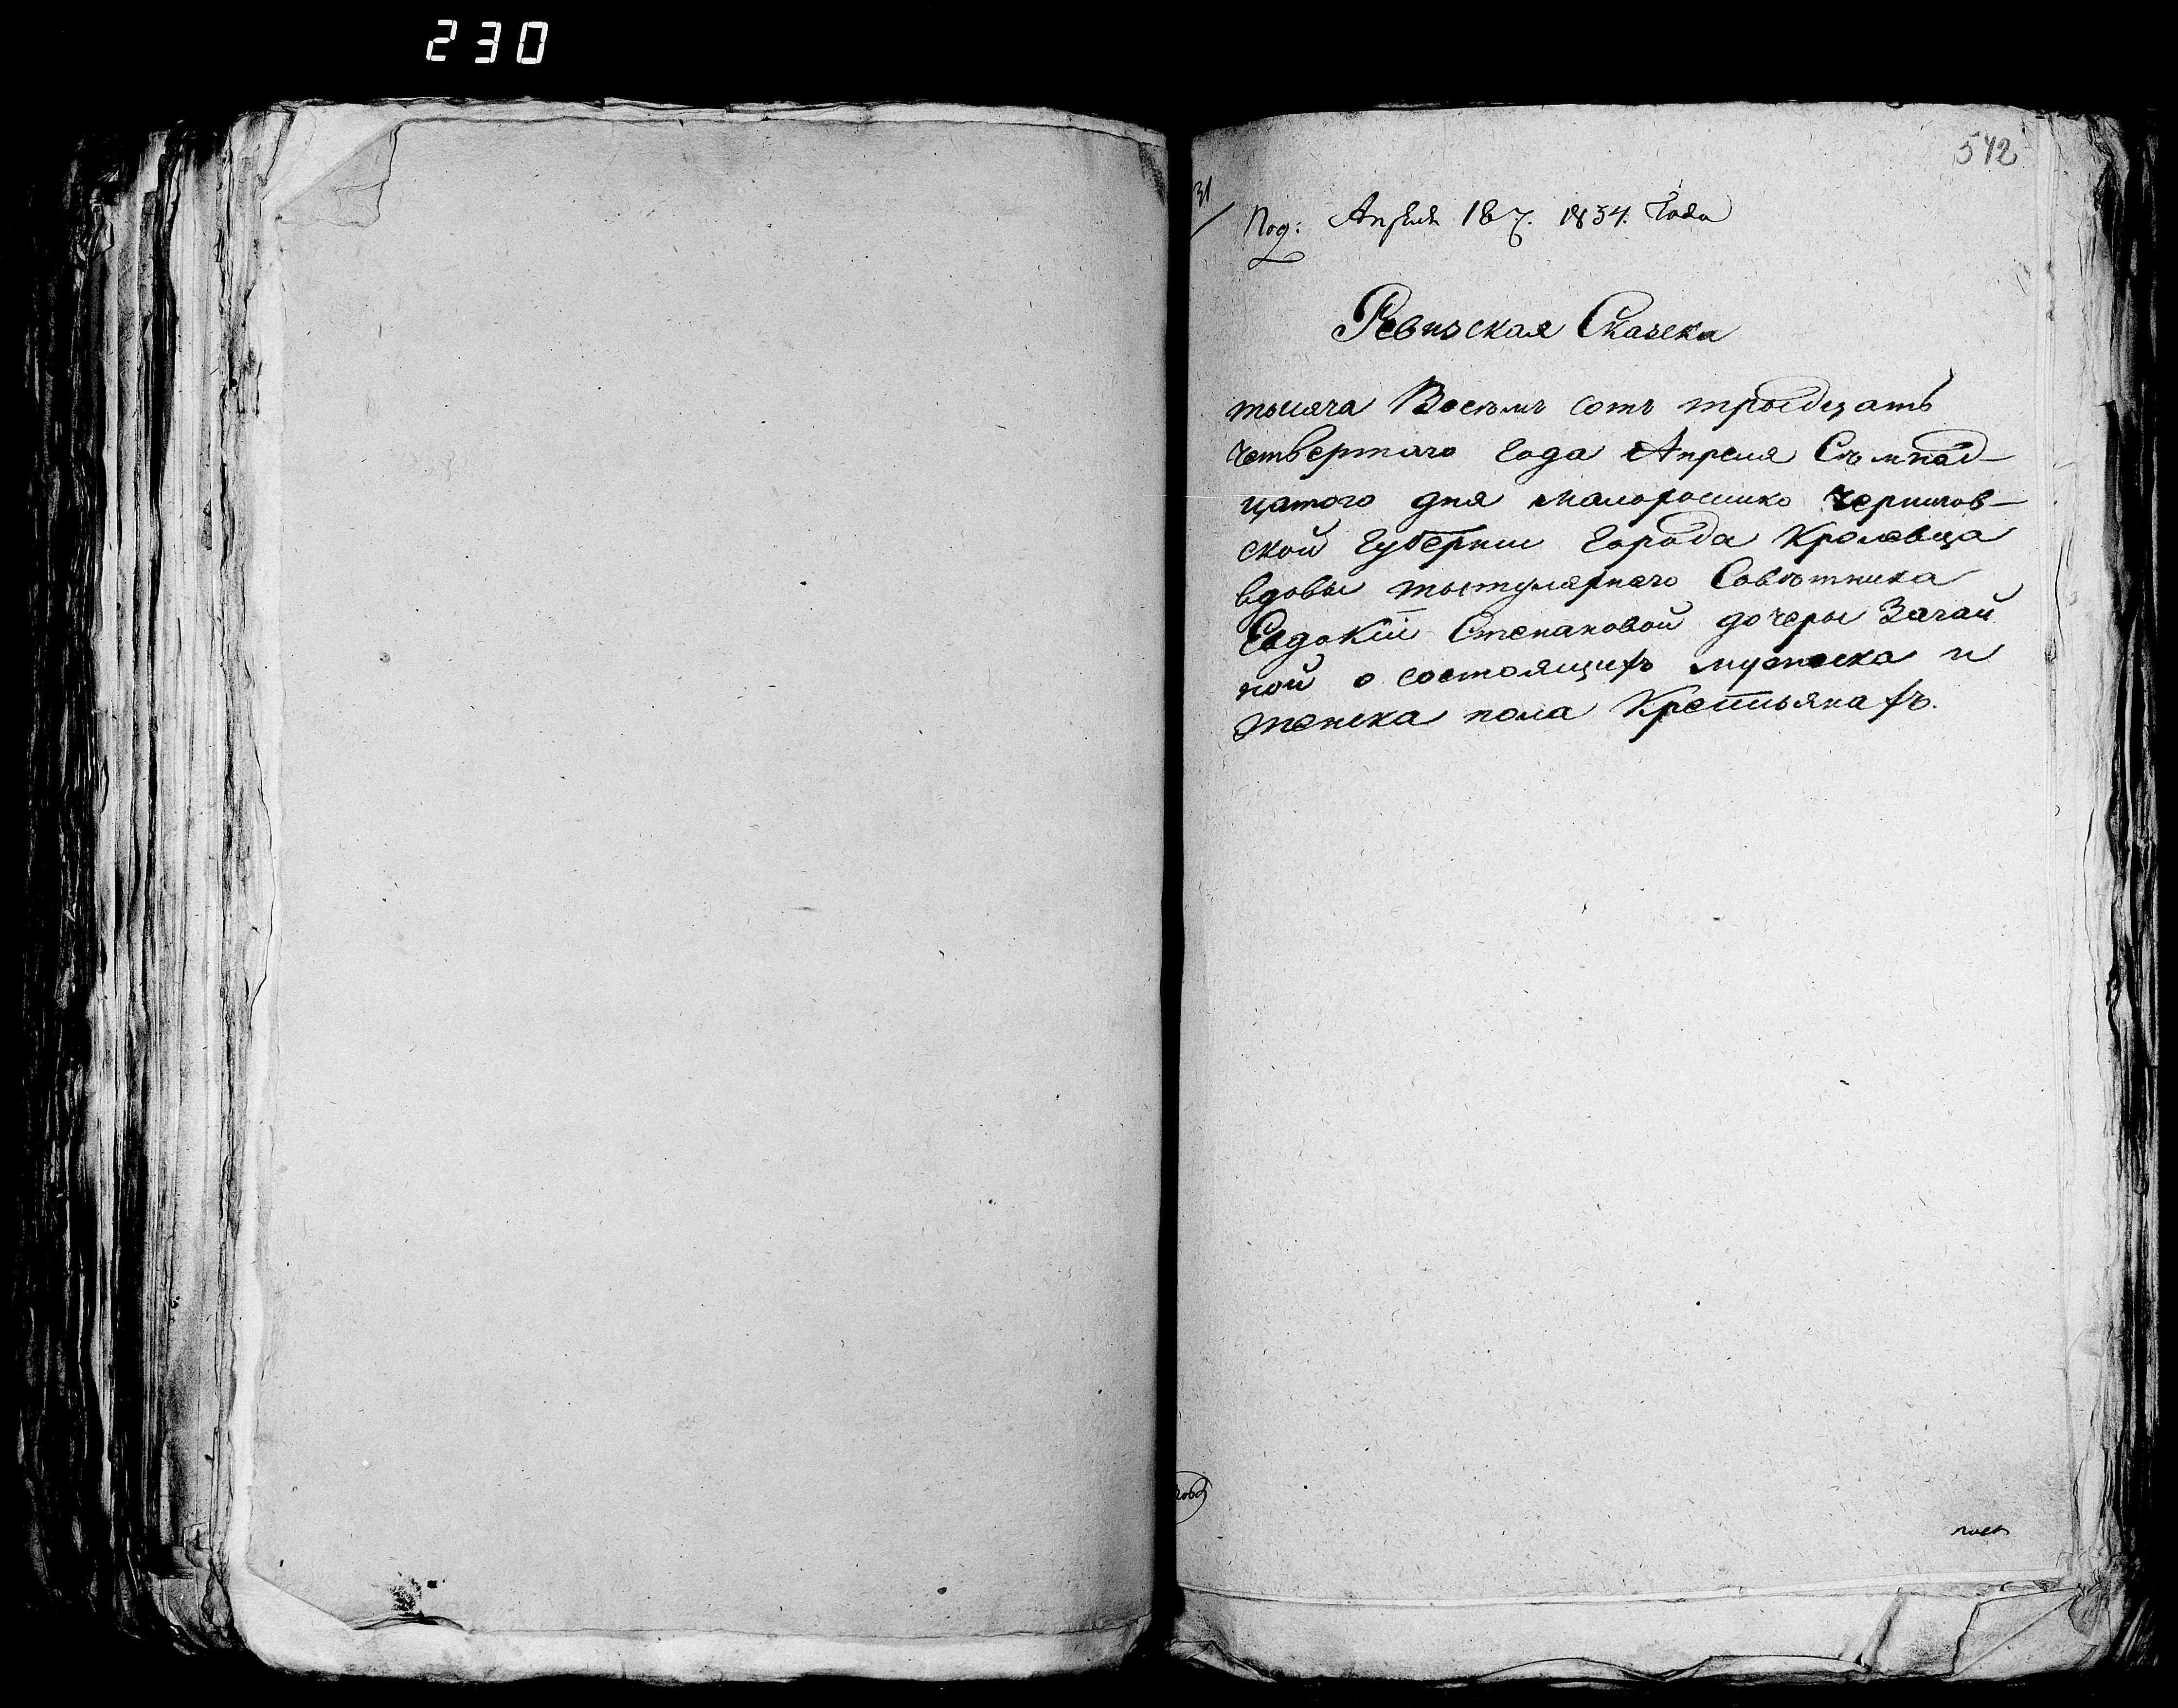 230
542
31
Под: Апреля 18 7. 1834. Года
Ревизская Сказска
тысяча Восъмъ сотъ трыдцать
четвертаго года Апреля Съмнад-
цатого дня малоросшико Чернигов-
ской Губернии города Кролевца
вдовы тытулярнаго Совѣтника
Евдокіи Степановой дочеры Зачай
ной о состоящихъ мужеска и
женска пола Крестьянахъ.